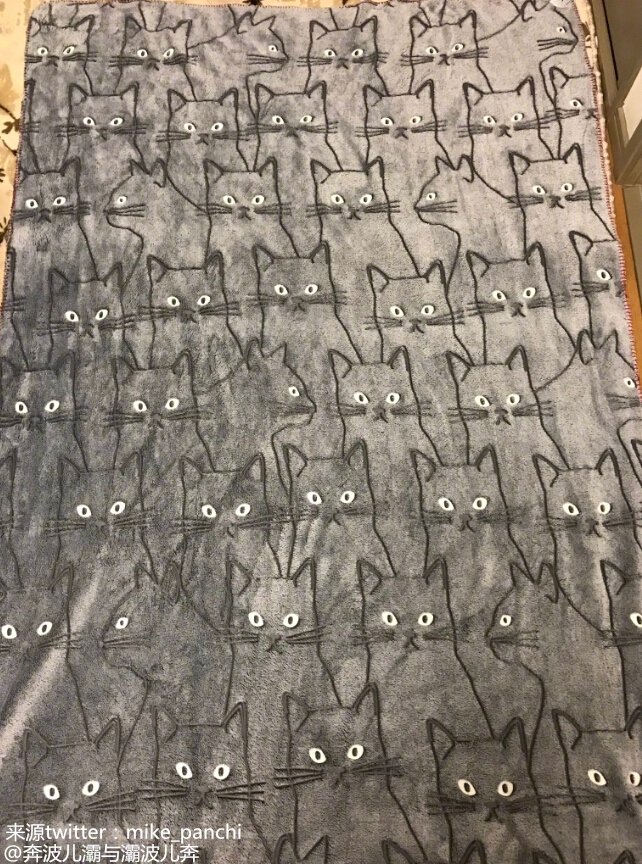 来源twitter：mike_panchi
@奔波儿灞与灞波儿奔